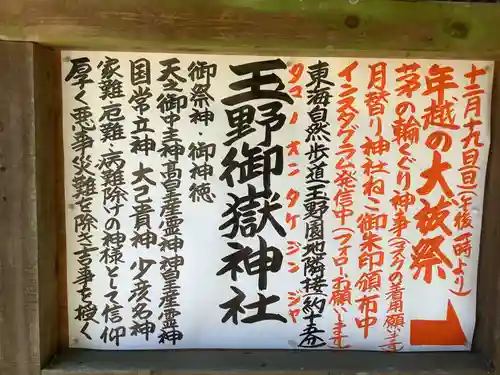 十二月十九日(日)(午後一時より)
年越の大祓祭
茅の輪くぐり神事(マスクの着用願います)
月替り神社ねこ御朱印頒布中
インスタグラム発信中(フォローお願いします)
東海自然歩道玉野園地隣接約十五分
タマノオンタケジンジャ
玉野御嶽神社
御祭神・御神徳
天之御中主神 高皇産霊神 神皇産霊神
国常立神 大己貴神 少彦名神
家難・厄難・病難除けの神様として信仰
厚く悪事災難を除き吉事を授く